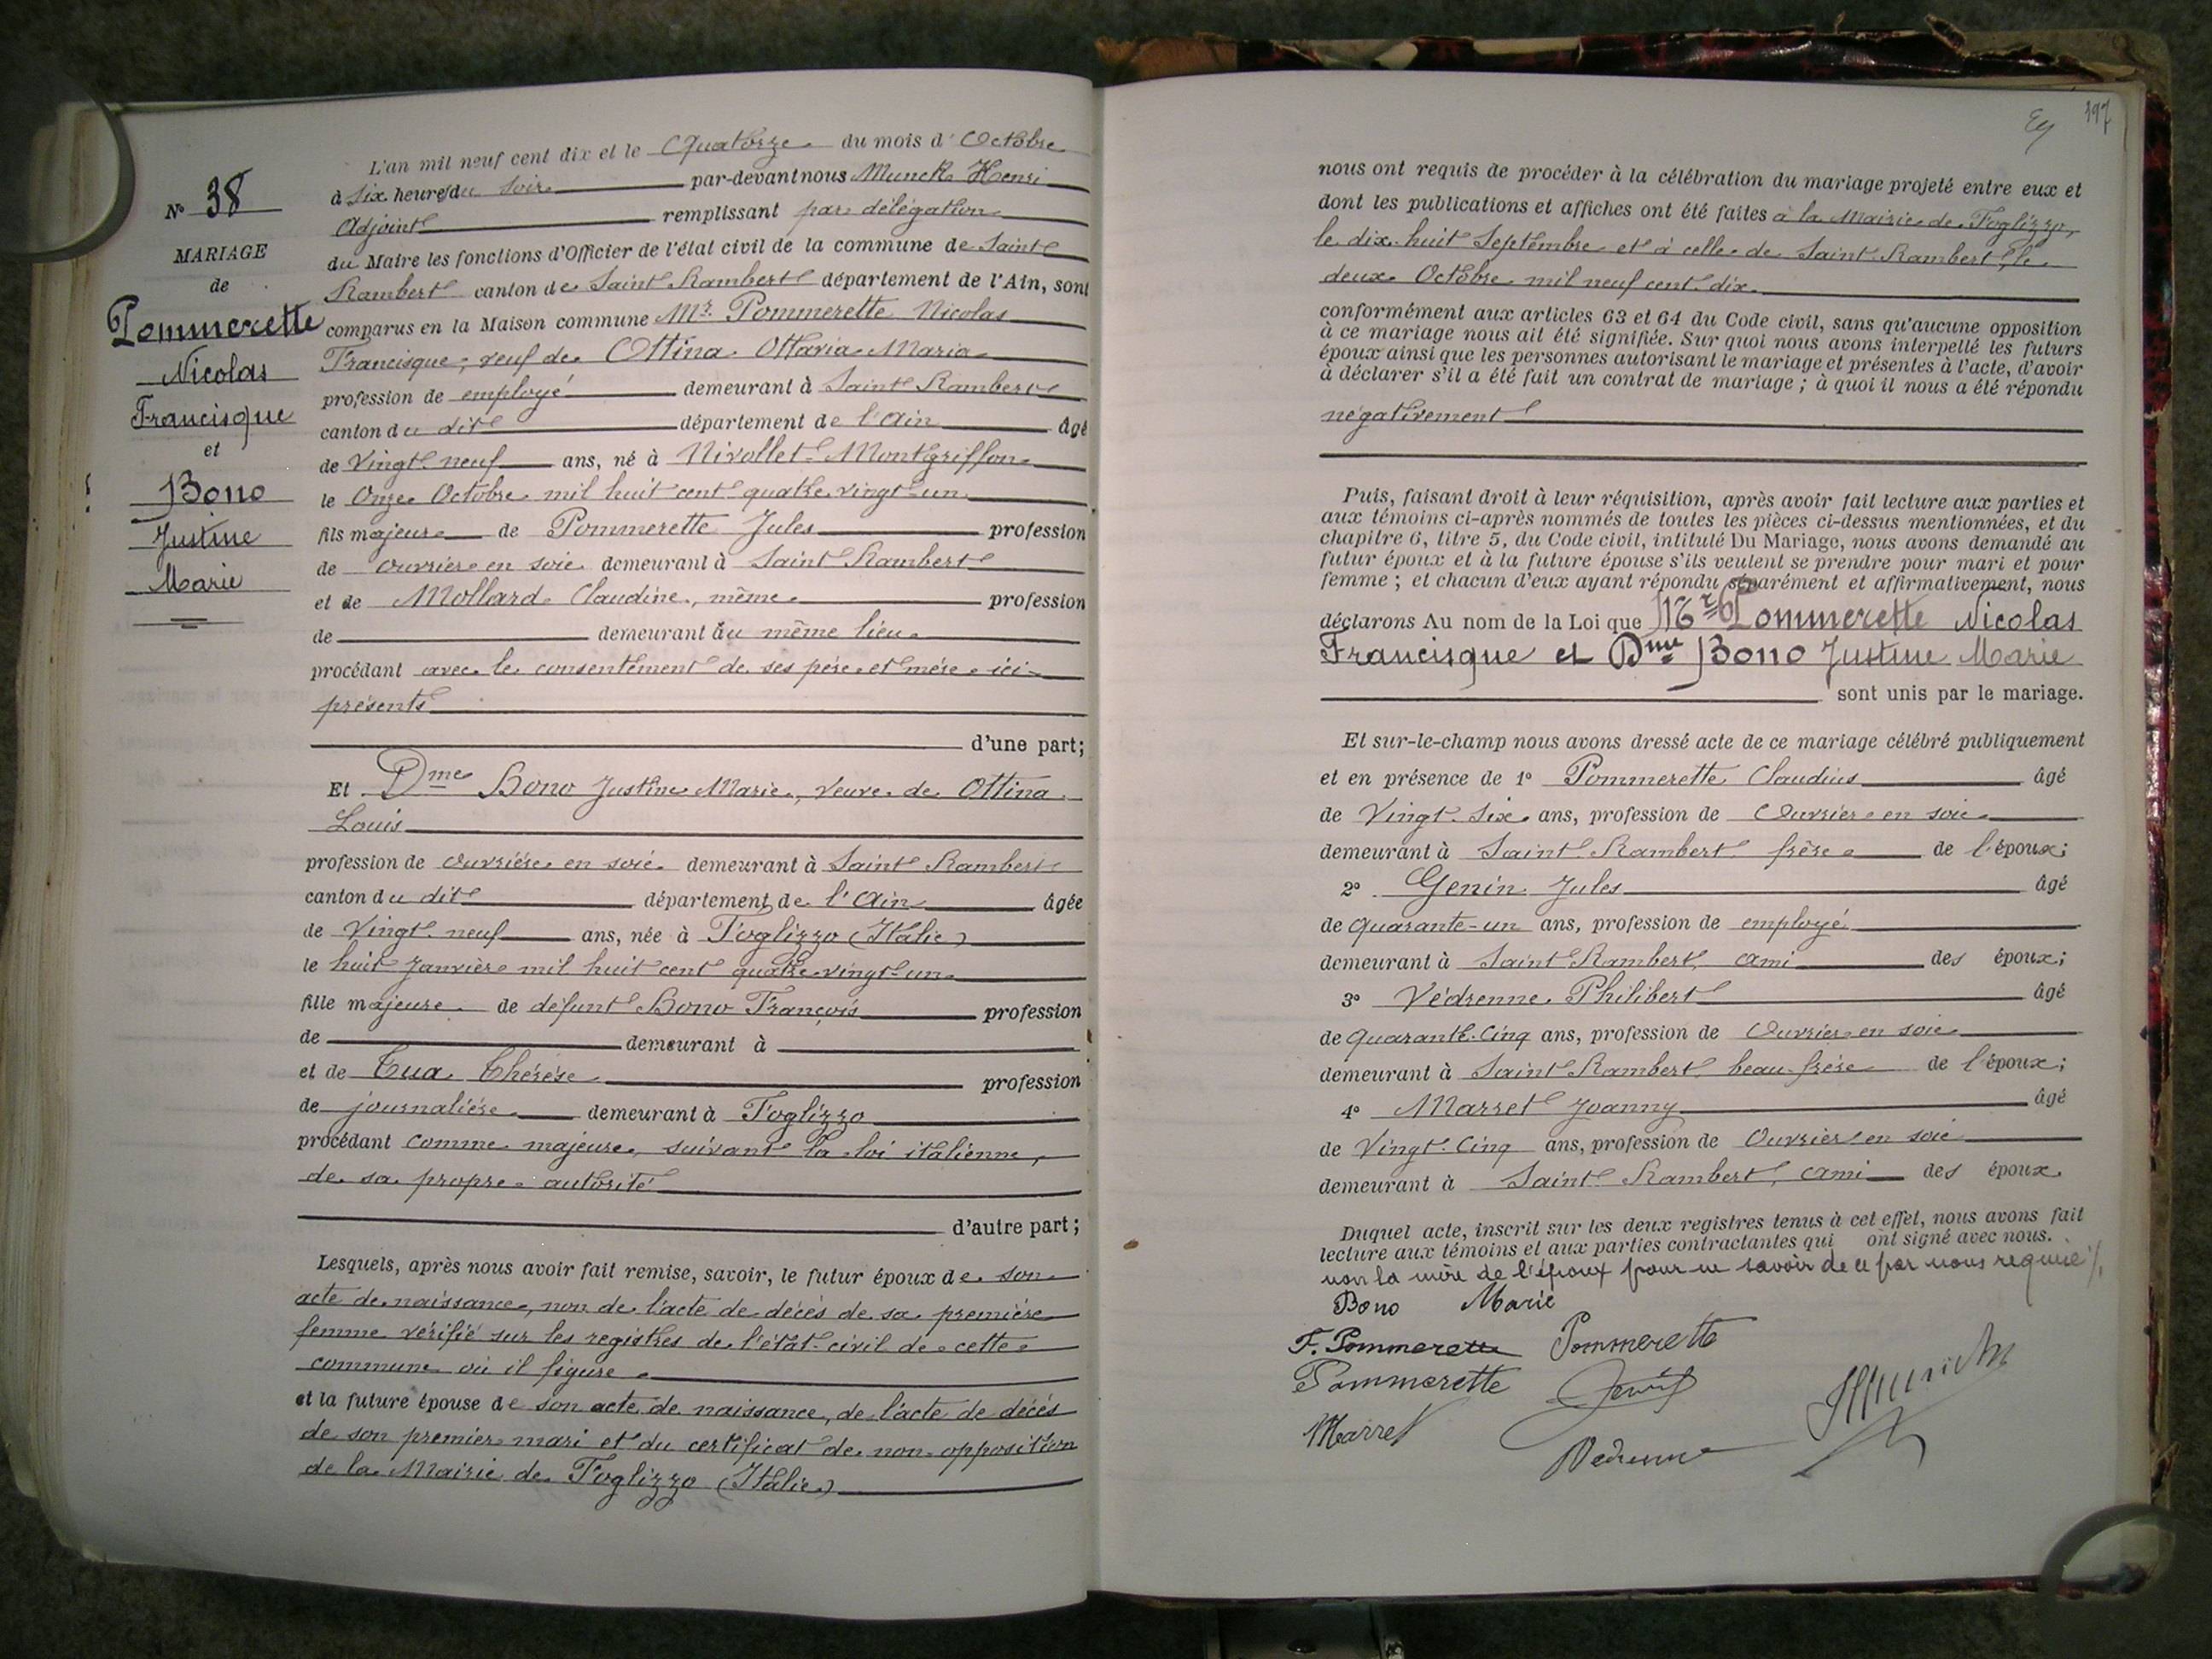 N° 38
MARIAGE
de
Pommerette
Nicolas
Francisque
et
Bono
Justine
Marie
L'an mil neuf cent dix et le Quatorze du mois d'Octobre
à six heures du soir par-devant nous Munck Henri
Adjoint remplissant par délégation
du Maire les fonctions d'Officier de l'état civil de la commune de Saint
Rambert canton de Saint Rambert département de l'Ain, sont
comparus en la Maison commune Mr. Pommerette Nicolas
Francisque, veuf de Ottina Ottavia Maria
profession de employé demeurant à Saint Rambert
canton du dit département de l'Ain âgé
de Vingt-neuf ans, né à Nivollet-Montgriffon
le Onze Octobre mil huit cent quatre vingt-un
fils majeur de Pommerette Jules profession
de ouvrier en soie demeurant à Saint Rambert
et de Mollard Claudine, même profession
de demeurant au même lieu
procédant avec le consentement de ses père et mère ici
présents
d'une part;
Et Dme Bono Justine Marie, veuve de Ottina
Louis
profession de ouvrière en soie demeurant à Saint Rambert
canton du dit département de l'Ain âgée
de Vingt-neuf ans, née à Foglizzo (Italie)
le huit Janvier mil huit cent quatre vingt-un
fille majeure de défunt Bono François profession
de demeurant à
et de Tua Thérèse profession
de journalière demeurant à Foglizzo
procédant comme majeure, suivant la loi italienne,
de sa propre autorité
d'autre part;
Lesquels, après nous avoir fait remise, savoir, le futur époux de son
acte de naissance, non de l'acte de décès de sa première
femme vérifié sur les registres de l'état-civil de cette
commune où il figure
et la future épouse de son acte de naissance, de l'acte de décès
de son premier mari et du certificat de non-opposition
de la Mairie de Foglizzo (Italie)
197
nous ont requis de procéder à la célébration du mariage projeté entre eux et
dont les publications et affiches ont été faites à la Mairie de Foglizzo,
le dix-huit Septembre et à celle de Saint Rambert, le
deux Octobre mil neuf cent dix
conformément aux articles 63 et 64 du Code civil, sans qu'aucune opposition
à ce mariage nous ait été signifiée. Sur quoi nous avons interpellé les futurs
époux ainsi que les personnes autorisant le mariage et présentes à l'acte, d'avoir
à déclarer s'il a été fait un contrat de mariage; à quoi il nous a été répondu
négativement
Puis, faisant droit à leur réquisition, après avoir fait lecture aux parties et
aux témoins ci-après nommés de toutes les pièces ci-dessus mentionnées, et du
chapitre 6, titre 5, du Code civil, intitulé Du Mariage, nous avons demandé au
futur époux et à la future épouse s'ils veulent se prendre pour mari et pour
femme; et chacun d'eux ayant répondu séparément et affirmativement, nous
déclarons Au nom de la Loi que Mr Pommerette Nicolas
Francisque et Dme Bono Justine Marie
sont unis par le mariage.
Et sur-le-champ nous avons dressé acte de ce mariage célébré publiquement
et en présence de 1° Pommerette Claudius âgé
de Vingt-six ans, profession de Ouvrier en soie
demeurant à Saint Rambert frère de l'époux;
2° Genin Jules âgé
de quarante-un ans, profession de employé
demeurant à Saint Rambert, ami des époux;
3° Védrenne Philibert âgé
de quarante-cinq ans, profession de Ouvrier en soie
demeurant à Saint Rambert beau-frère de l'époux;
4° Marret Joanny âgé
de Vingt-cinq ans, profession de Ouvrier en soie
demeurant à Saint Rambert, ami des époux.
Duquel acte, inscrit sur les deux registres tenus à cet effet, nous avons fait
lecture aux témoins et aux parties contractantes qui ont signé avec nous.
non la mère de l'époux pour ne savoir de ce par nous requise
Bono Marie
F. Pommerette Pommerette
Pommerette Genin
Munck
Marret
Vedrenne